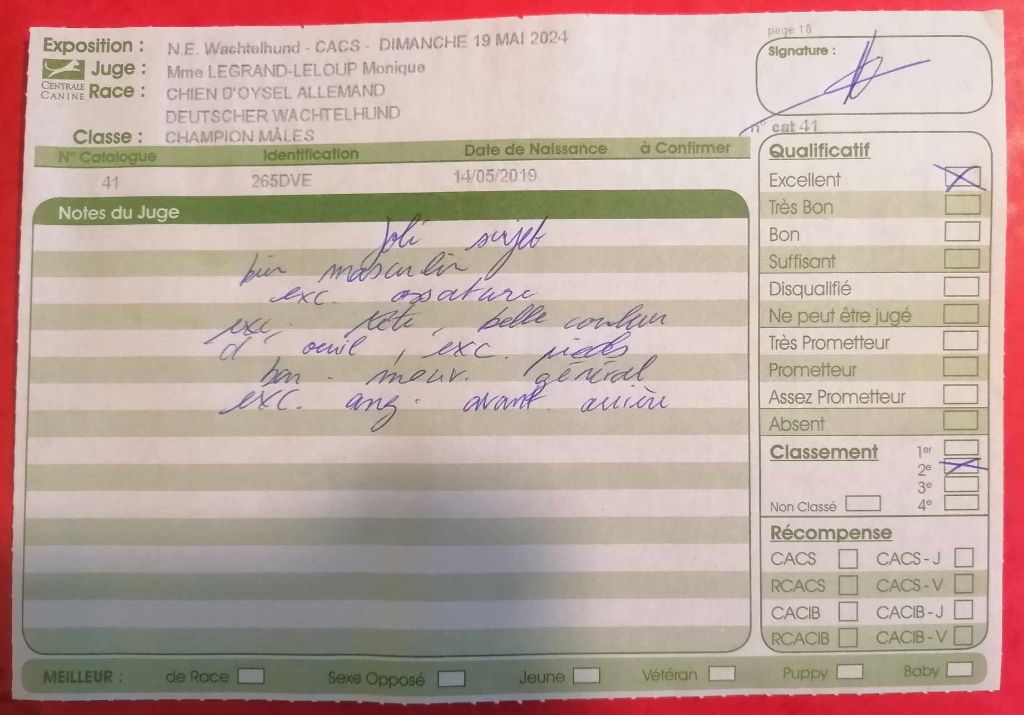 Exposition : N.E. Wachtelhund - CACS - DIMANCHE 19 MAI 2024
Juge : Mme LEGRAND-LELOUP Monique
CENTRALE CANINE
Race : CHIEN D'OYSEL ALLEMAND
DEUTSCHER WACHTELHUND
Classe : CHAMPION MÂLES
page 16
Signature :
n° cat 41
N° Catalogue Identification Date de Naissance à Confirmer
41 265DVE 14/05/2019
Notes du Juge
Joli sujet
bien masculin
exc. ossature
exc. tête, belle couleur
d'oeuil, exc. pieds
bon. mouv. général
exc. ang. avant. arrière
Qualificatif
Excellent
Très Bon
Bon
Suffisant
Disqualifié
Ne peut être jugé
Très Prometteur
Prometteur
Assez Prometteur
Absent
Classement 1er
2e
3e
Non Classé 4e
Récompense
CACS CACS-J
RCACS CACS-V
CACIB CACIB-J
RCACIB CACIB-V
MEILLEUR : de Race Sexe Opposé Jeune Vétéran Puppy Baby